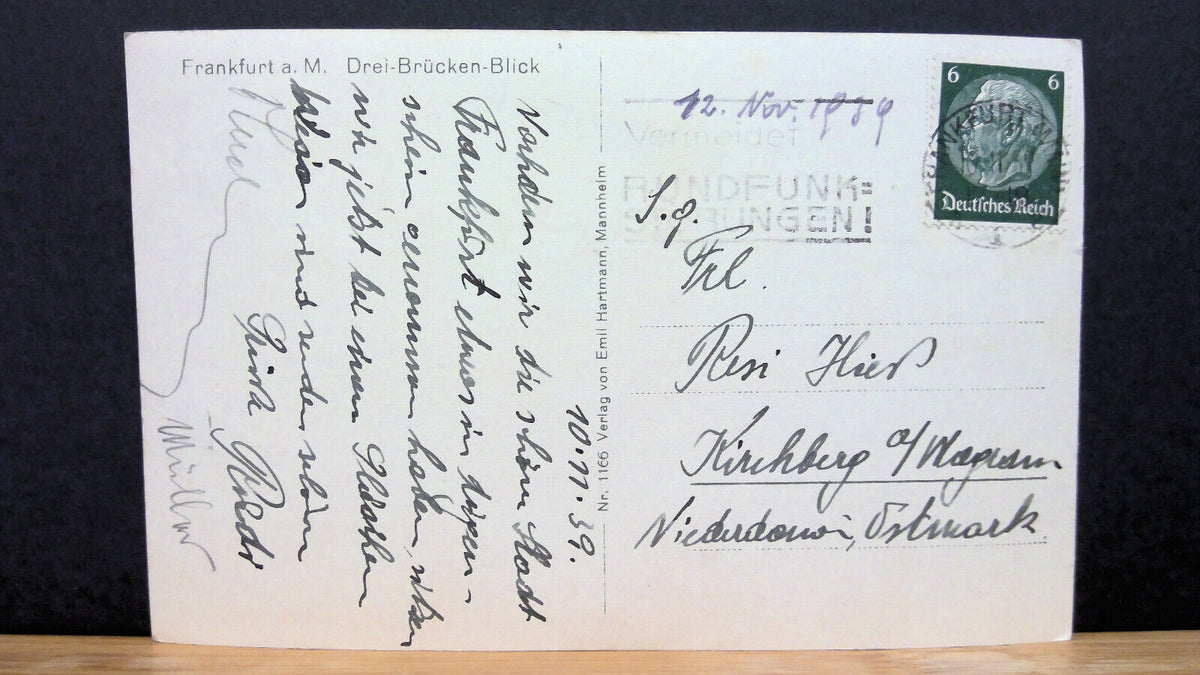 Frankfurt a. M. Drei-Brücken-Blick
10.11.39.
Nachdem wir die schöne Stadt
Frankfurt etwas in Augen-
schein genommen haben, sitzen
wir jetzt bei einem Gläschen
und senden schöne
Grüße
Müller
Nr. 1166 Verlag von Emil Hartmann, Mannheim
12. Nov. 1939
Vermeidet
RUNDFUNK=
STÖRUNGEN!
6 6
FRANKFURT
Deutsches Reich
S. g.
Frl.
Resi Hieß
Kirchberg a/Wagram
Niederdonau, Ostmark.